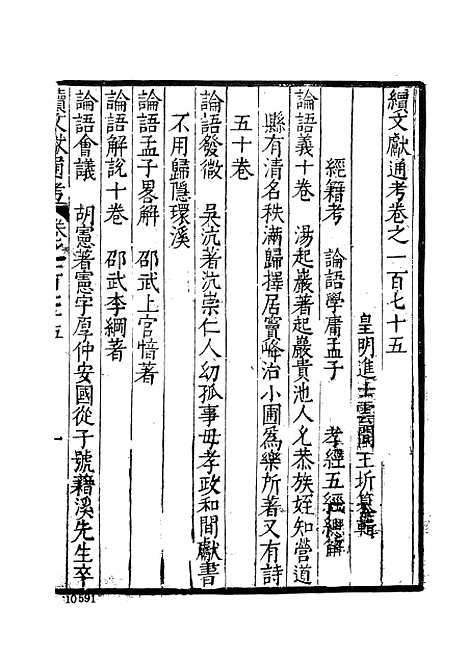 續文獻通考卷之一百七十五
皇明進士雲間王圻纂輯
經籍考 論語學庸孟子 孝經五經總解
論語義十卷 湯起巖著起巖貴池人允恭族姪知營道
縣有清名秩滿歸擇居竇峰治小圃爲樂所著又有詩
五十卷
論語發微 吳沆著沆崇仁人幼孤事母孝政和間獻書
不用歸隱環溪
論語孟子畧解 邵武上官愔著
論語解說十卷 邵武李綱著
論語會議 胡憲著憲字原仲安國從子號籍溪先生卒
續文獻通考 卷之一百七十五 一
10591